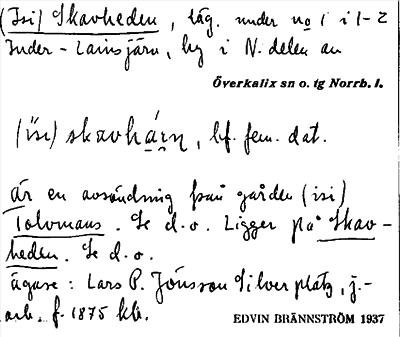 (Isi) Skavheden, läg. under no 1 i 1-2
Inder-Lansjärn, by i N. delen av
Överkalix sn o. tg Norrb. l.
(isi) skavhá̱rn, bf. fem. dat.
är en avsöndring från gården (isi)
Tolvmans. Se d. o. Ligger på Skav-
heden. Se d. o.
ägare: Lars P. Jönsson Silverplatz, j.-
arb. f. 1875 klb.
EDVIN BRÄNNSTRÖM 1937